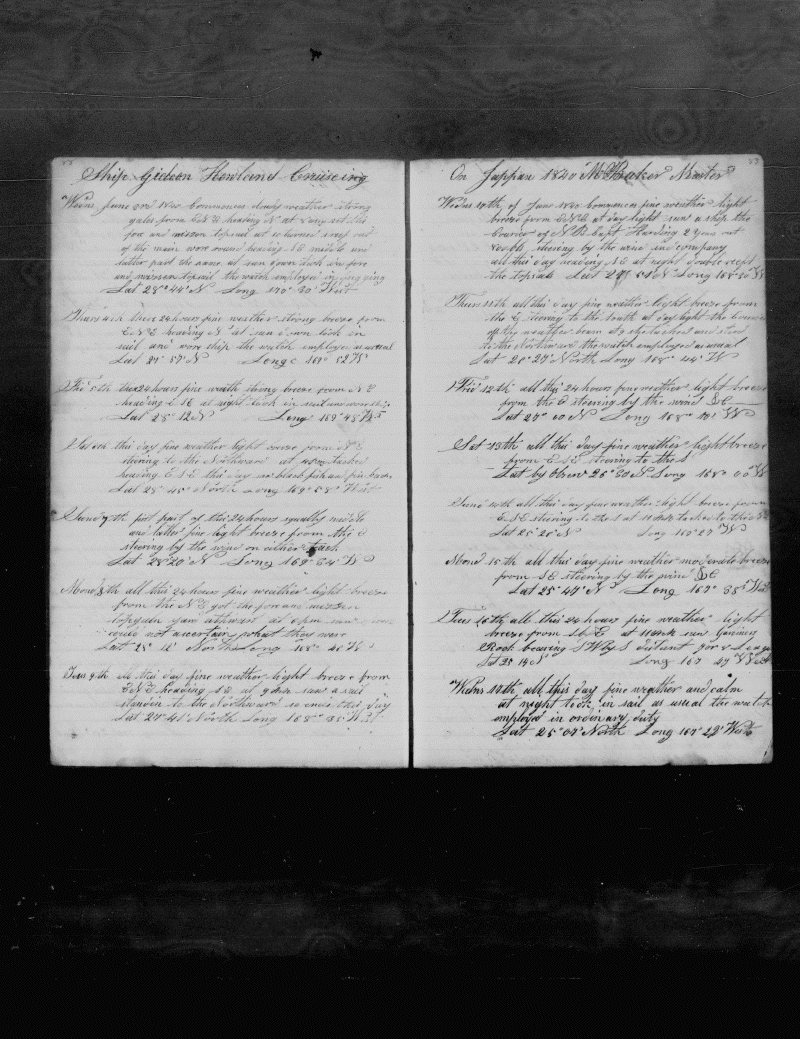 Ship Gideon Howland Cruiseing
Weds June 3rd 1840 Commences cloudy weather strong
gales from ENE heading N at 8
fore and mizzen topsail at
of the main wore round heading SE middle and
latter part the same at sun down took in fore
and mizzen topsail the watch employed in
Lat 28° 44 N Long 170° 30 West
Thurs 4th these 24 hours fine weather strong breeze from
ENE heading N at sun down took in
sail and wore ship the watch employed as usual
Lat 27° 57 N Longe 169° 52 W
Fri 5th these 24 hours fine weath strong breeze from NE
heading ESE at night took in sail and wore ship
Lat 28° 12 N Long 169° 48 W
Sat 6th this day fine weather light breeze from NE
steering to the Northward at tacked
heading ESE this day saw black fish and fin backs
Lat 28° 45 North Long 169° 58 West
Sund 7th first part of this 24 hours squally middle
and latter fine light breeze from the E
steering by the wind on either tack
Lat 28° 20 N Long 169° 34 W
Mond 8th all this 24 hours fine weather light breeze
from the NE got the fore and mizzen
topgaln yard athwart at 6 pm saw
could not ascertain what they were
Lat 28° 12 North Long 168° 40 W
Tues 9th all this day fine weather light breeze from
ENE heading SE at 9 saw a sail
standin to the Northward so ends this day
Lat 27° 41 North Long 168° 35 W
On Jappan 1840 M Baker Master
Weds 10th of June 1840 Commences fine weather light
breeze from ENE at day light saw a ship the
of NB Capt Harding 2 years out
steering by the wind in company
all this day heading SE at night double reeft
the topsails Lat 27 54 N Long 168° 50 W
Thurs 11th all this day fine weather light breeze from
the E steering to the south at day light the
off the weather beam at 9 she tacked and stood
to the Northward the watch employed as usual
Lat 26° 27 North Long 168° 44 W
Frid 12th all this 24 hours fine weather light breeze
from the E steering by the wind SE
Lat 27° 00 N Long 168° W
Sat 13th all this day fine weather light breeze
from ESE steering to the S
Lat by Obsev 26° 30 N Long 168° 00 W
Sund 14th all this day fine weather light breeze from
ESE steering to the S at tackt to the
Lat 25° 25 N Long 167° 27 W
Mond 15th all this day fine weather moderate breeze
from SE steering by the wind SE
Lat 25° 44 N Long 167° 38 West
Tues 16th all this 24 hours fine weather light
breeze from SbE at saw Gardners
Rock bearing SWbyS distant 7 or 8 Leags
Lat 25 14 N Long 167 49 West
Weds 17th all this day fine weather and calm
at night took in sail as usual the watch
employed in ordinary duty
Lat 25° 07 North Long 167° 22 West